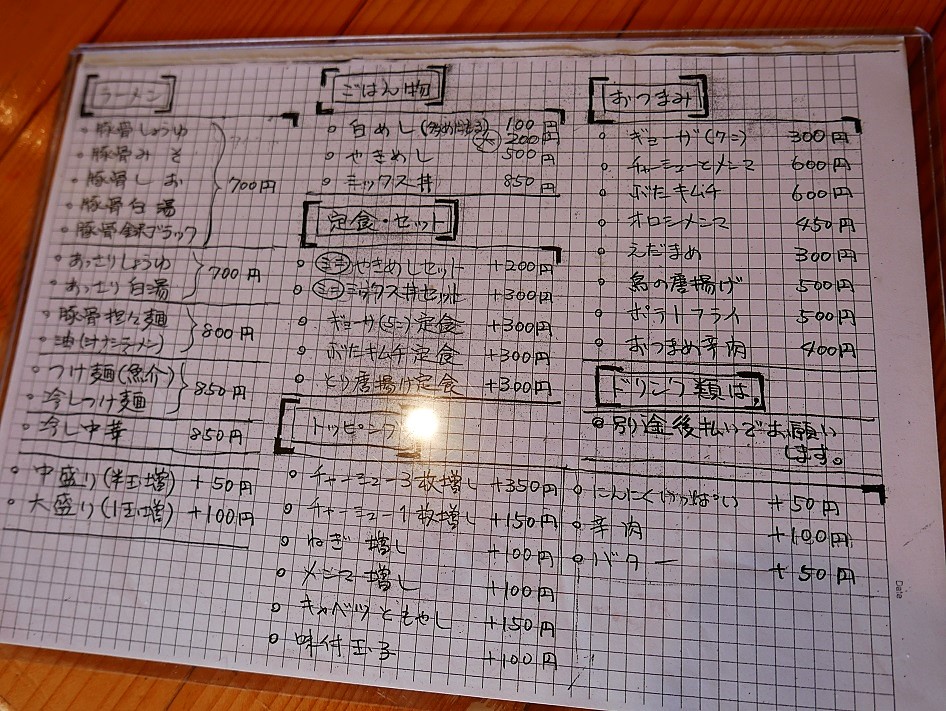 ラーメン
・豚骨しょうゆ
・豚骨みそ
・豚骨しお
・豚骨白湯
・豚骨 ブラック
700円
・あっさりしょうゆ
・あっさり白湯
700円
・豚骨担々麺
・油(汁ナシラーメン)
800円
・つけ麺(魚介)
・冷しつけ麺
850円
・冷し中華 850円
・中盛り(半玉増) +50円
・大盛り(1玉増) +100円
ごはん物
・白めし 100円
大 200円
・やきめし 500円
・ミックス丼 850円
定食・セット
・ミニやきめしセット +200円
・ミニミックス丼セット +300円
・ギョーザ(5コ)定食 +300円
・ぶたキムチ定食 +300円
・とり唐揚げ定食 +300円
トッピング
・チャーシュー3枚増し +350円
・チャーシュー1枚増し +150円
・ねぎ増し +100円
・メンマ増し +100円
・キャベツともやし +150円
・味付玉子 +100円
・にんにくいっぱい +50円
・辛肉 +100円
・バター +50円
おつまみ
・ギョーザ(7コ) 300円
・チャーシューとメンマ 600円
・ぶたキムチ 600円
・オロシメンマ 450円
・えだまめ 300円
・鳥の唐揚げ 500円
・ポテトフライ 500円
・おつまめ辛肉 400円
ドリンク類は、
・別途後払いでお願い
します。
Date